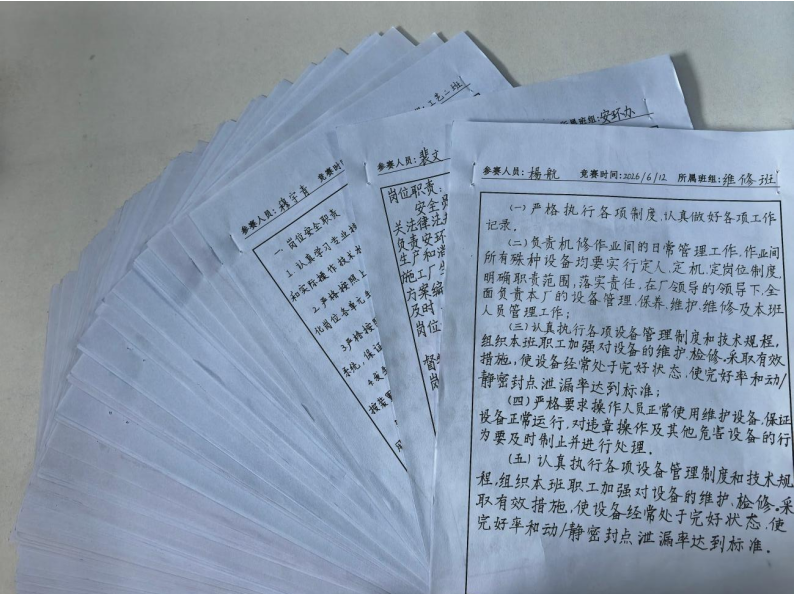 参赛人员:杨航 竞赛时间:2026/6/12 所属班组:维修班
(一)严格执行各项制度,认真做好各项工作
记录.
(二)负责机修作业间的日常管理工作,作业间
所有殊种设备均要实行定人,定机,定岗位制度,
明确职责范围,落实责任,在厂领导的领导下,全
面负责本厂的设备管理.保养.维护.维修及本班
人员管理工作;
(三)认真执行各项设备管理制度和技术规程,
组织本班职工加强对设备的维护检修.采取有效
措施,使设备经常处于完好状态,使完好率和动/
静密封点泄漏率达到标准;
(四)严格要求操作人员正常使用维护设备,保证
设备正常运行.对违章操作及其他危害设备的行
为要及时制止并进行处理.
(五)认真执行各项设备管理制度和技术规
程,组织本班职工加强对设备的维护,检修.采
取有效措施,使设备经常处于完好状态,使
完好率和动/静密封点泄漏率达到标准.
参赛人员:裴文
所属班组:安环办
岗位职责:
安全员
关法律法
负责安环
生产和消
施工厂
方案编
及时
岗位
督
岗
参赛人员:钱宇青 竞赛时
一.岗位安全职责
1.认真学习专业技
和实际操作技术
2.严格按照上
化岗位各单元
3严格按
系统,保证
工艺二班